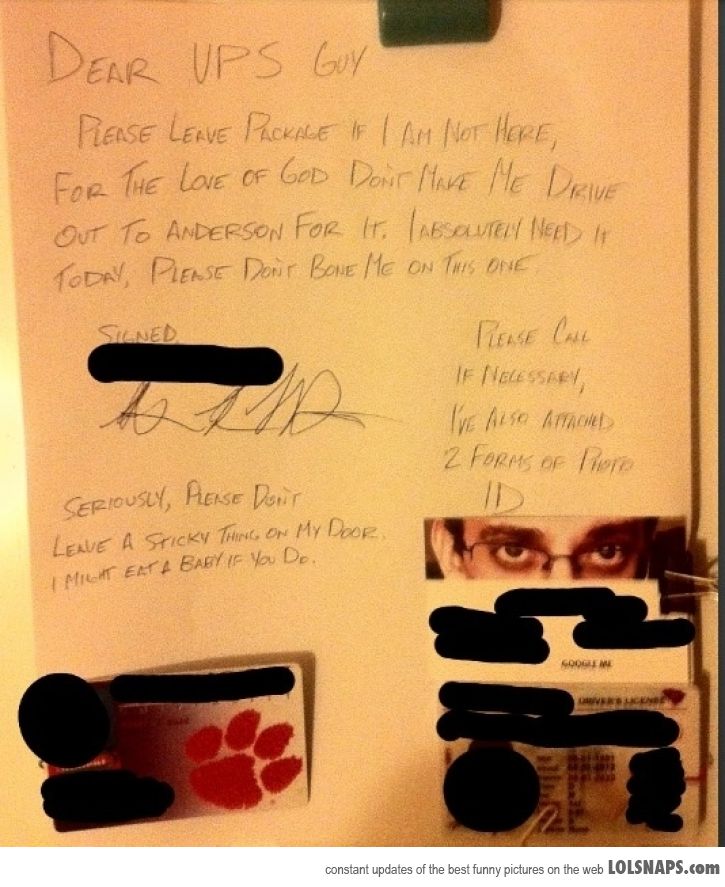 DEAR UPS GUY
PLEASE LEAVE PACKAGE IF I AM NOT HERE,
FOR THE LOVE OF GOD DON'T MAKE ME DRIVE
OUT TO ANDERSON FOR IT. I ABSOLUTELY NEED IT
TODAY, PLEASE DON'T BONE ME ON THIS ONE.
SIGNED,
PLEASE CALL
IF NECESSARY,
I'VE ALSO ATTACHED
2 FORMS OF PHOTO
ID
SERIOUSLY, PLEASE DON'T
LEAVE A STICKY THING ON MY DOOR.
I MIGHT EAT A BABY IF YOU DO.
GOOGLE ME
DRIVER'S LICENSE
constant updates of the best funny pictures on the web LOLSNAPS.com